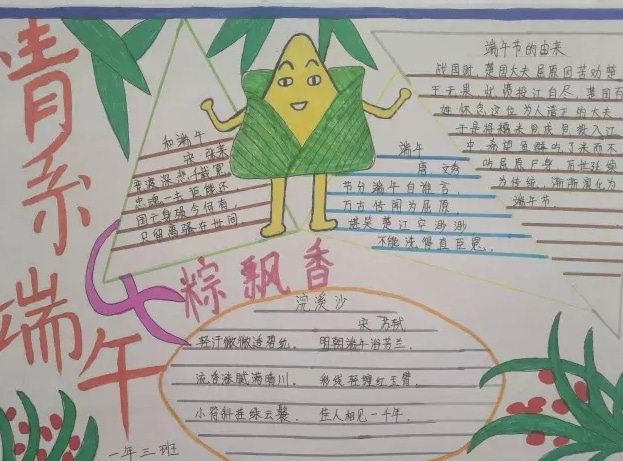 情系端午
粽飘香
和端午
宋 张耒
竞渡深悲千载冤
忠魂一去讵能还
国亡身殒今何有
只留离骚在世间
端午
唐 文秀
节分端午自谁言，
万古传闻为屈原，
堪笑楚江空渺渺
不能洗得直臣冤。
端午节的由来
战国时，楚国大夫屈原因苦劝楚
王无果，悲愤投江自尽，楚国百
姓怀念这位为人清正的大夫
于是将糯米
投入江
中，希望鱼群吃了米而不
吃屈原尸身，
世延续
为传统，渐渐演化为
端午节。
浣溪沙
宋 苏轼
轻汗微微透碧纨， 明朝端午浴芳兰，
流香涨腻满晴川。 彩线轻缠红玉臂，
小符斜挂绿云鬟。 佳人相见一千年，
一年三班